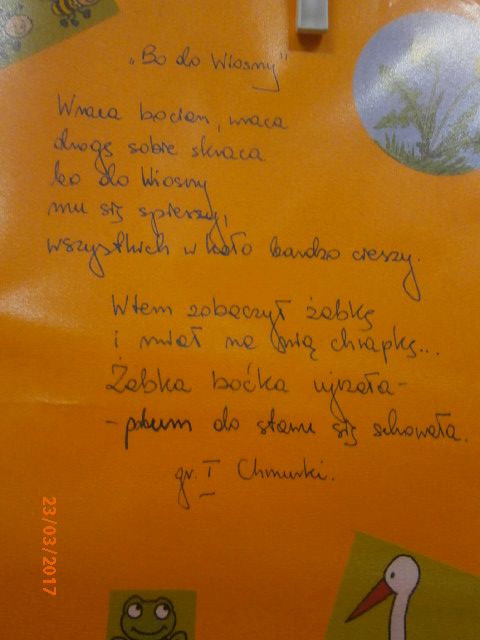 „Bo do Wiosny"
Wraca bocian, wraca
drogę sobie skraca
bo do Wiosny
mu się spieszy,
wszystkich w koło bardzo cieszy.
Wtem zobaczył żabkę
i miał na nią chrapkę...
Żabka boćka ujrzała –
– plum do stawu się schowała.
gr. I Chmurki.
23/03/2017